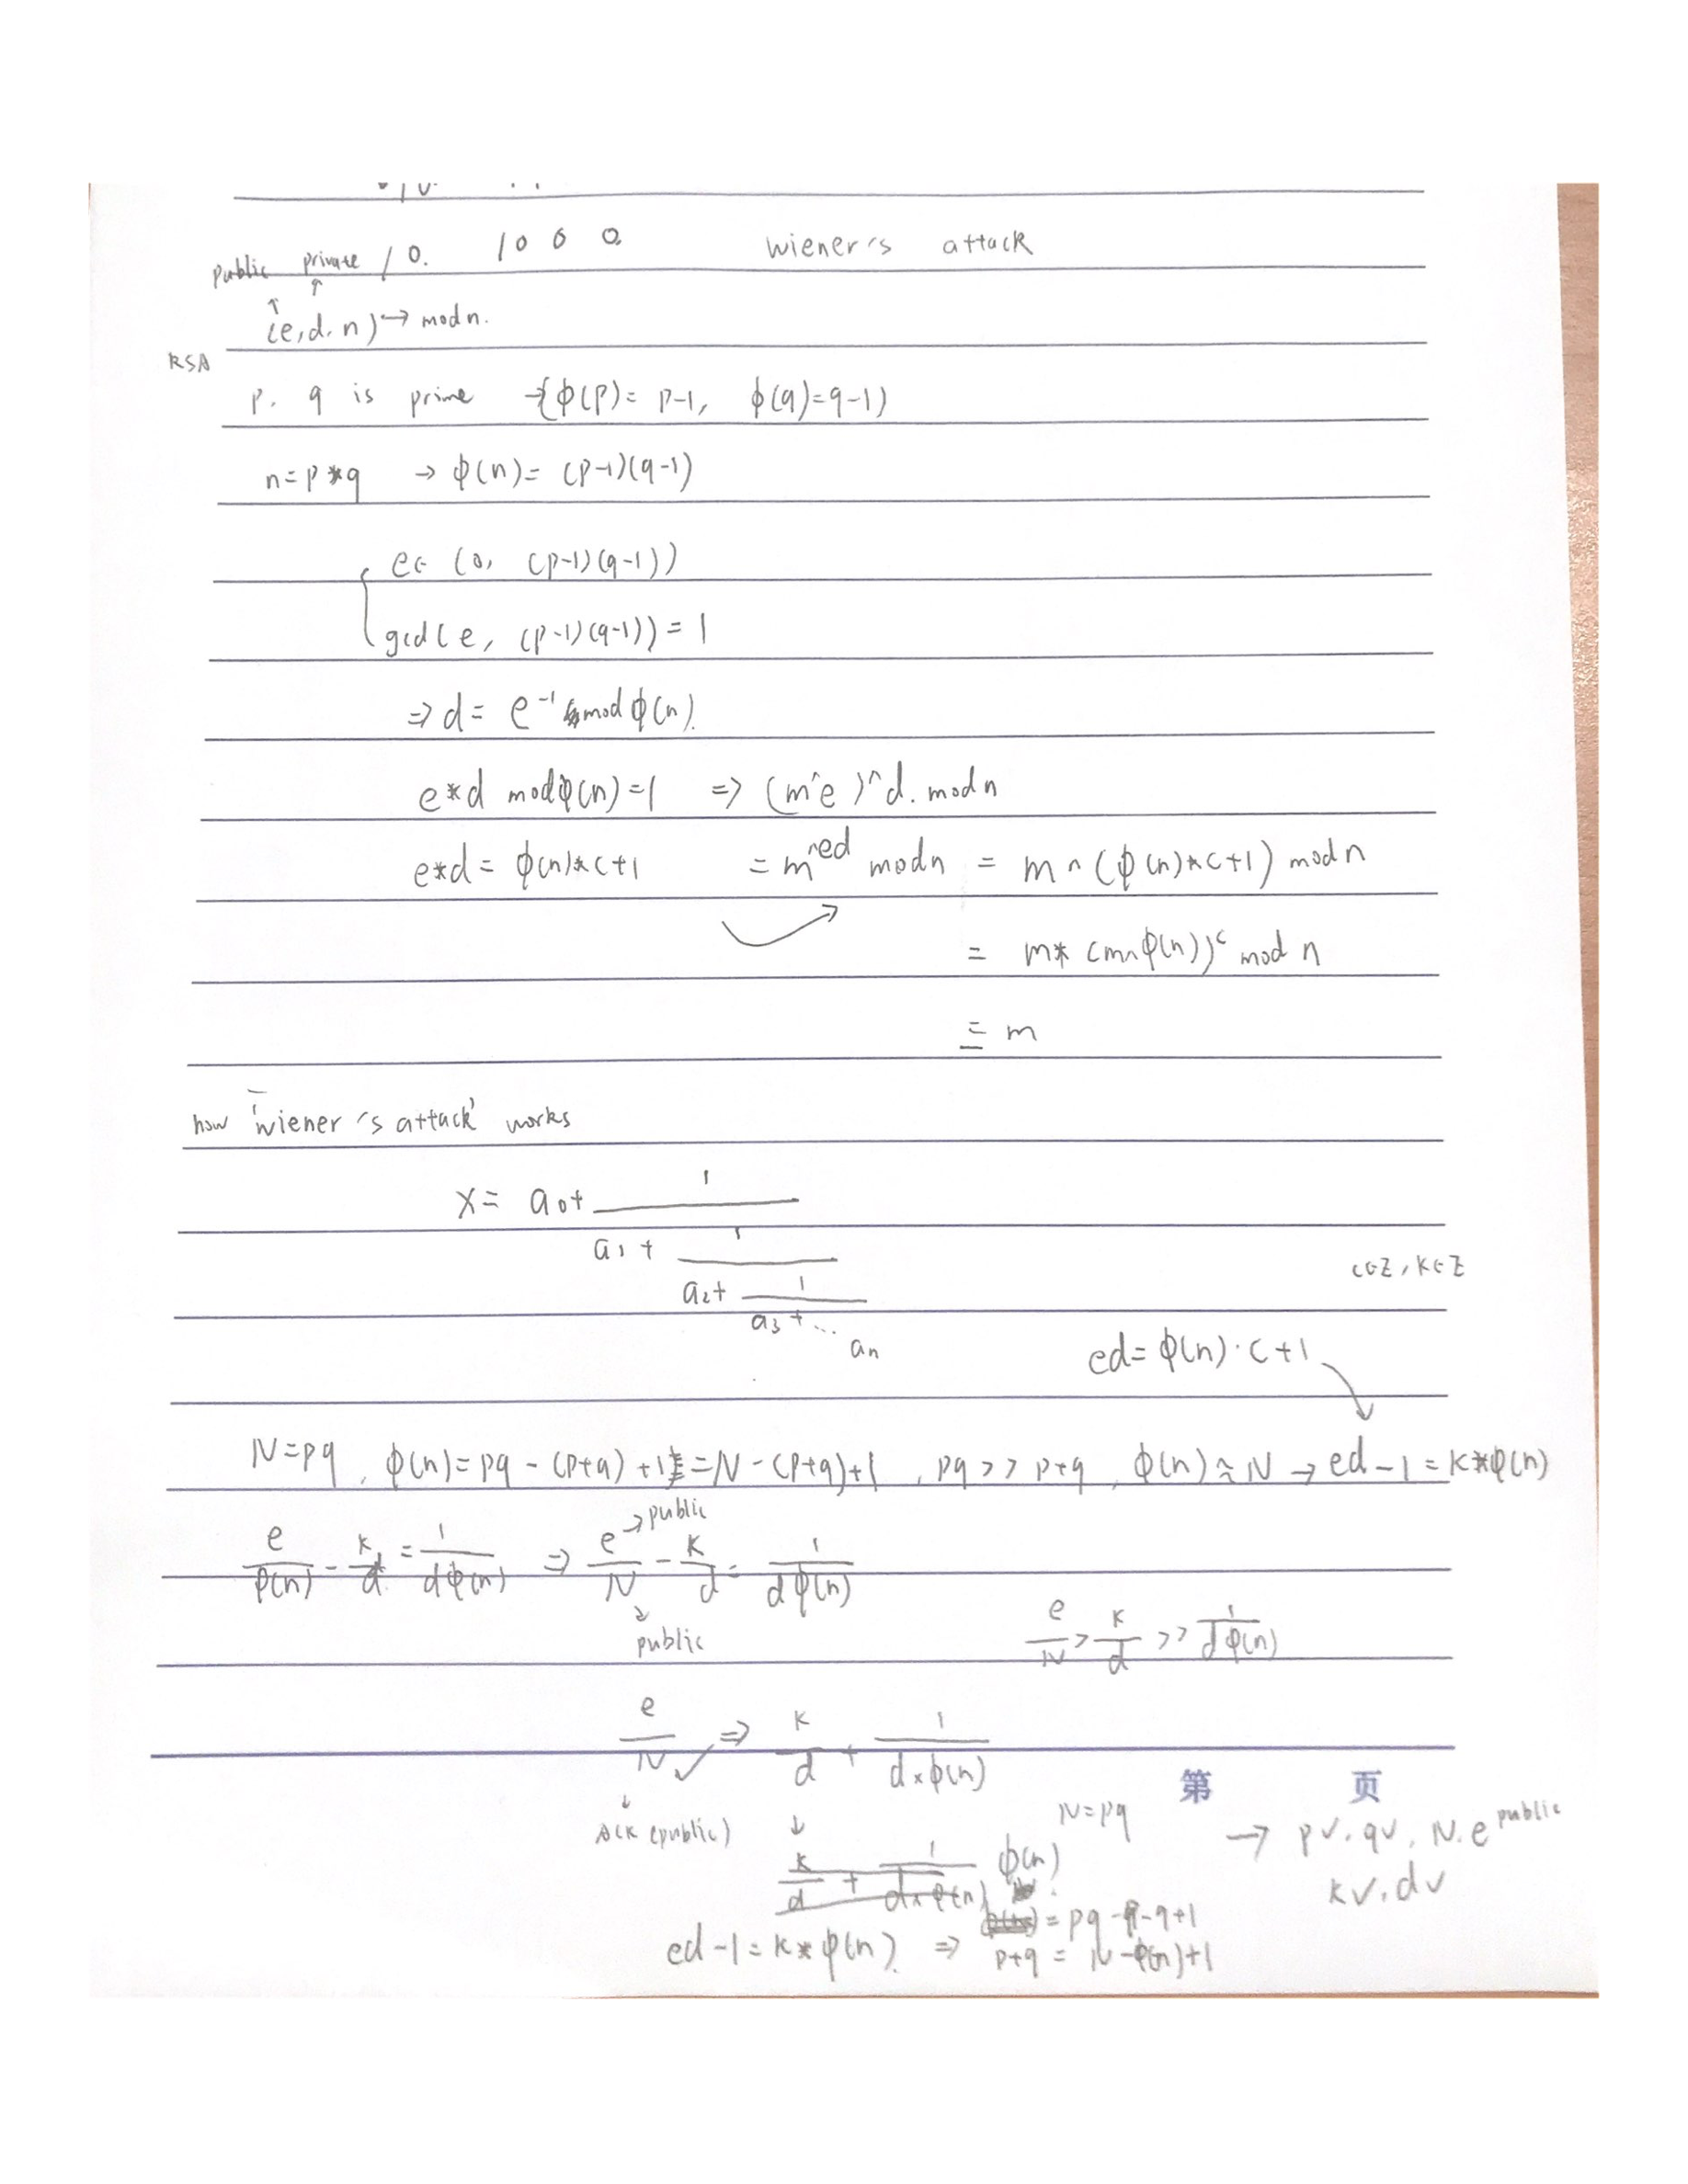 / 0. 10 0 0. wiener's attack
public private
(e, d, n) → mod n.
RSA
p. q is prime → {ϕ(p) = p-1, ϕ(q)=q-1)
n = p * q → ϕ(n) = (p-1)(q-1)
e∈ (0, (p-1)(q-1))
gcd(e, (p-1)(q-1)) = 1
⇒ d = e⁻¹ mod ϕ(n).
e*d mod ϕ(n) = 1 ⇒ (m^e)^d. mod n
e*d = ϕ(n)*c+1 = m^ed mod n = m^(ϕ(n)*c+1) mod n
= m* (m^ϕ(n))^c mod n
= m
how 'wiener's attack' works
x = a0 + 1
a1 + 1
a2 + 1
a3 + ...
an
c∈Z, k∈Z
ed = ϕ(n)·c+1
N=pq, ϕ(n)=pq-(p+q)+1 = N-(p+q)+1, pq >> p+q, ϕ(n)≈N → ed-1 = k*ϕ(n)
e/ϕ(n) - k/d = 1/dϕ(n) ⇒ e/N - k/d = 1/dϕ(n)
→ public
public
e/N > k/d >> 1/dϕ(n)
e/N ✓ ⇒ k/d + 1/d×ϕ(n)
第 页
(public)
N=pq
→ p✓. q✓. N. e public
k✓. d✓
k/d + 1/d×ϕ(n)
ϕ(n)
= pq-p-q+1
ed-1 = k*ϕ(n). ⇒ p+q = N-ϕ(n)+1